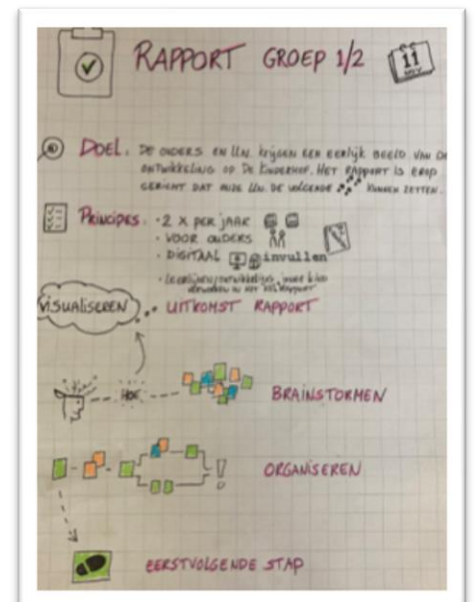 RAPPORT GROEP 1/2
11
NOV
DOEL: DE OUDERS EN LLN. krijgen EEN EERLIJK BEELD VAN DE
ONTWIKKELING OP DE KINDERHOF. HET RAPPORT IS EROP
GERICHT DAT ONZE LLN. DE VOLGENDE KUNNEN ZETTEN.
PRINCIPES: • 2 X PER JAAR
• VOOR OUDERS
• DIGITAAL invullen
VISUALISEREN UITKOMST RAPPORT
HOE BRAINSTORMEN
! ORGANISEREN
EERSTVOLGENDE STAP